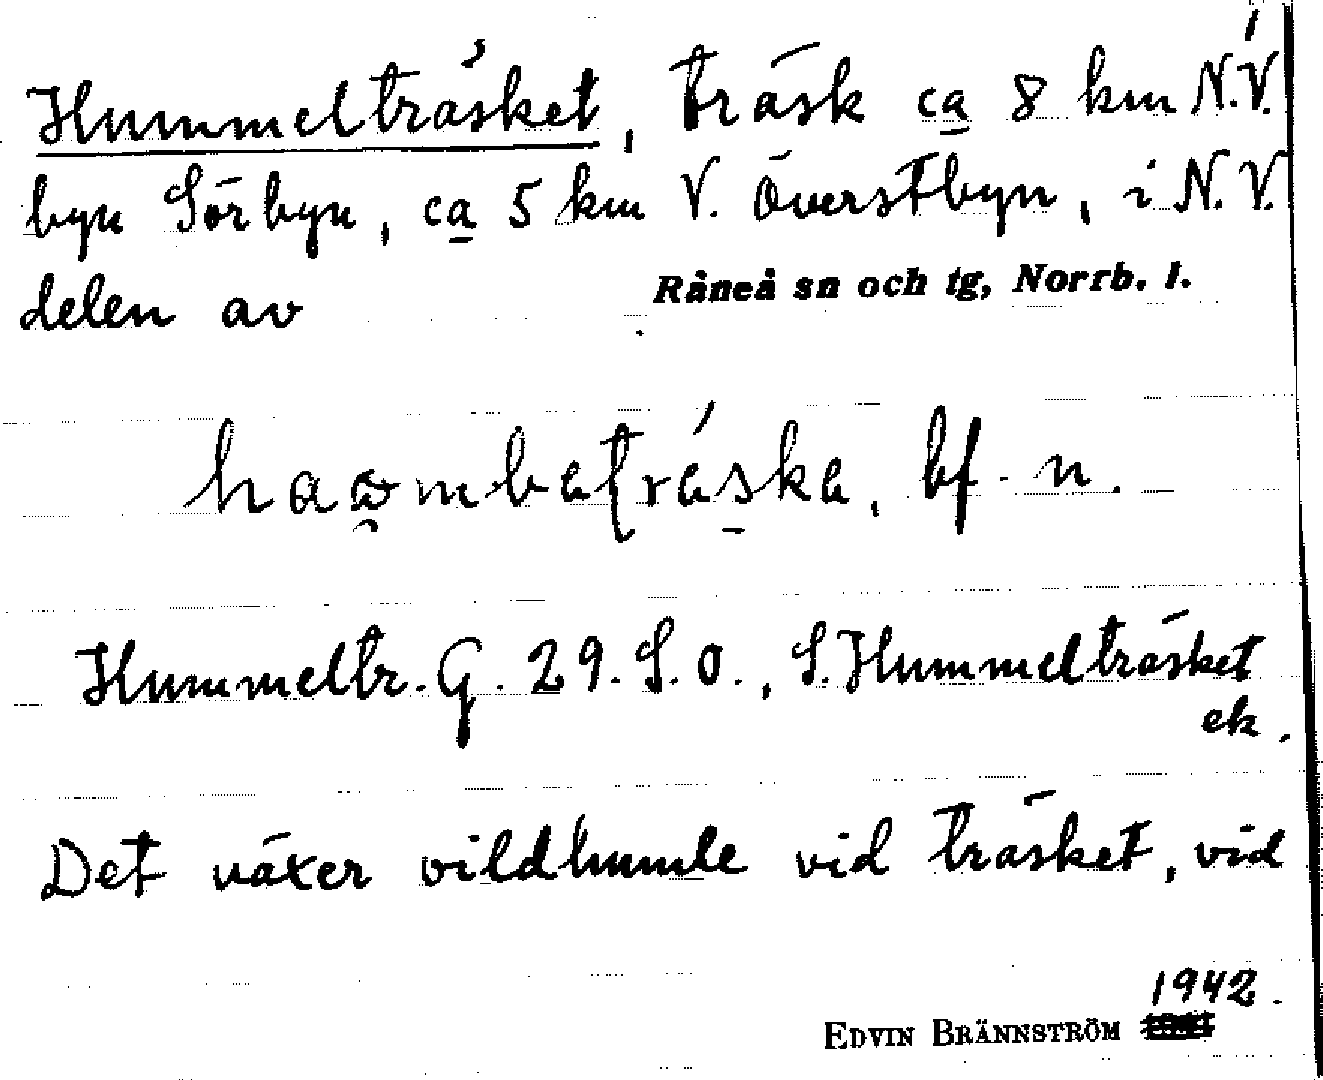 Hummelträsket, träsk ca 8 km N.V.
byn Sörbyn, ca 5 km V. Överstbyn, i N.V.
delen av Råneå sn och tg, Norrb. l.
bf. n.
Hummeltr. G. 29. S.O., S. Hummelträsket
ek.
Det växer vildhumle vid träsket, vid
1942.
EDVIN BRÄNNSTRÖM